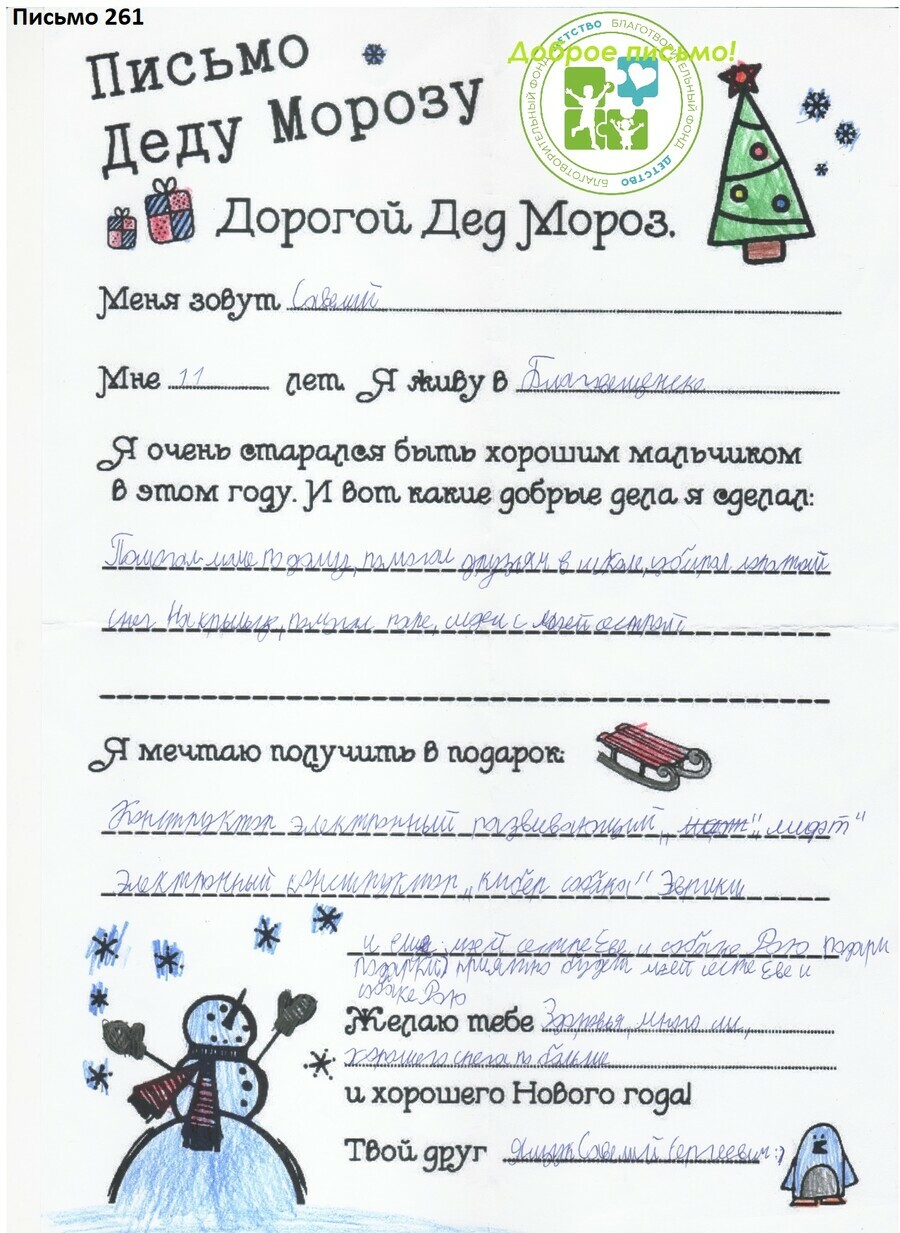 Письмо 261
Письмо
Деду Морозу
Доброе письмо!
БЛАГОТВОРИТЕЛЬНЫЙ ФОНД ДЕТСТВО БЛАГОТВОРИТЕЛЬНЫЙ ФОНД ДЕТСТВО
Дорогой Дед Мороз.
Меня зовут Савелий
Мне 11 лет. Я живу в Благвещенске
Я очень старался быть хорошим мальчиком
в этом году. И вот какие добрые дела я сделал:
Помогал маме по дому, помогал друзьям в школе, убирал лопатой
снег На крыльце, помогал папе, сидел с моей сестрой
Я мечтаю получить в подарок:
Конструктор электронный развивающий „ „лифт"
Электронный конструктор „кибер собака" Эврики
и ещё моей сестре Еве и собаке Рэю подари
подарки) приятно будет моей сестре Еве и
собаке Рэю
Желаю тебе Здоровья, много
хорошего снега по больше
и хорошего Нового года!
Твой друг Савелий Сергеевич :)